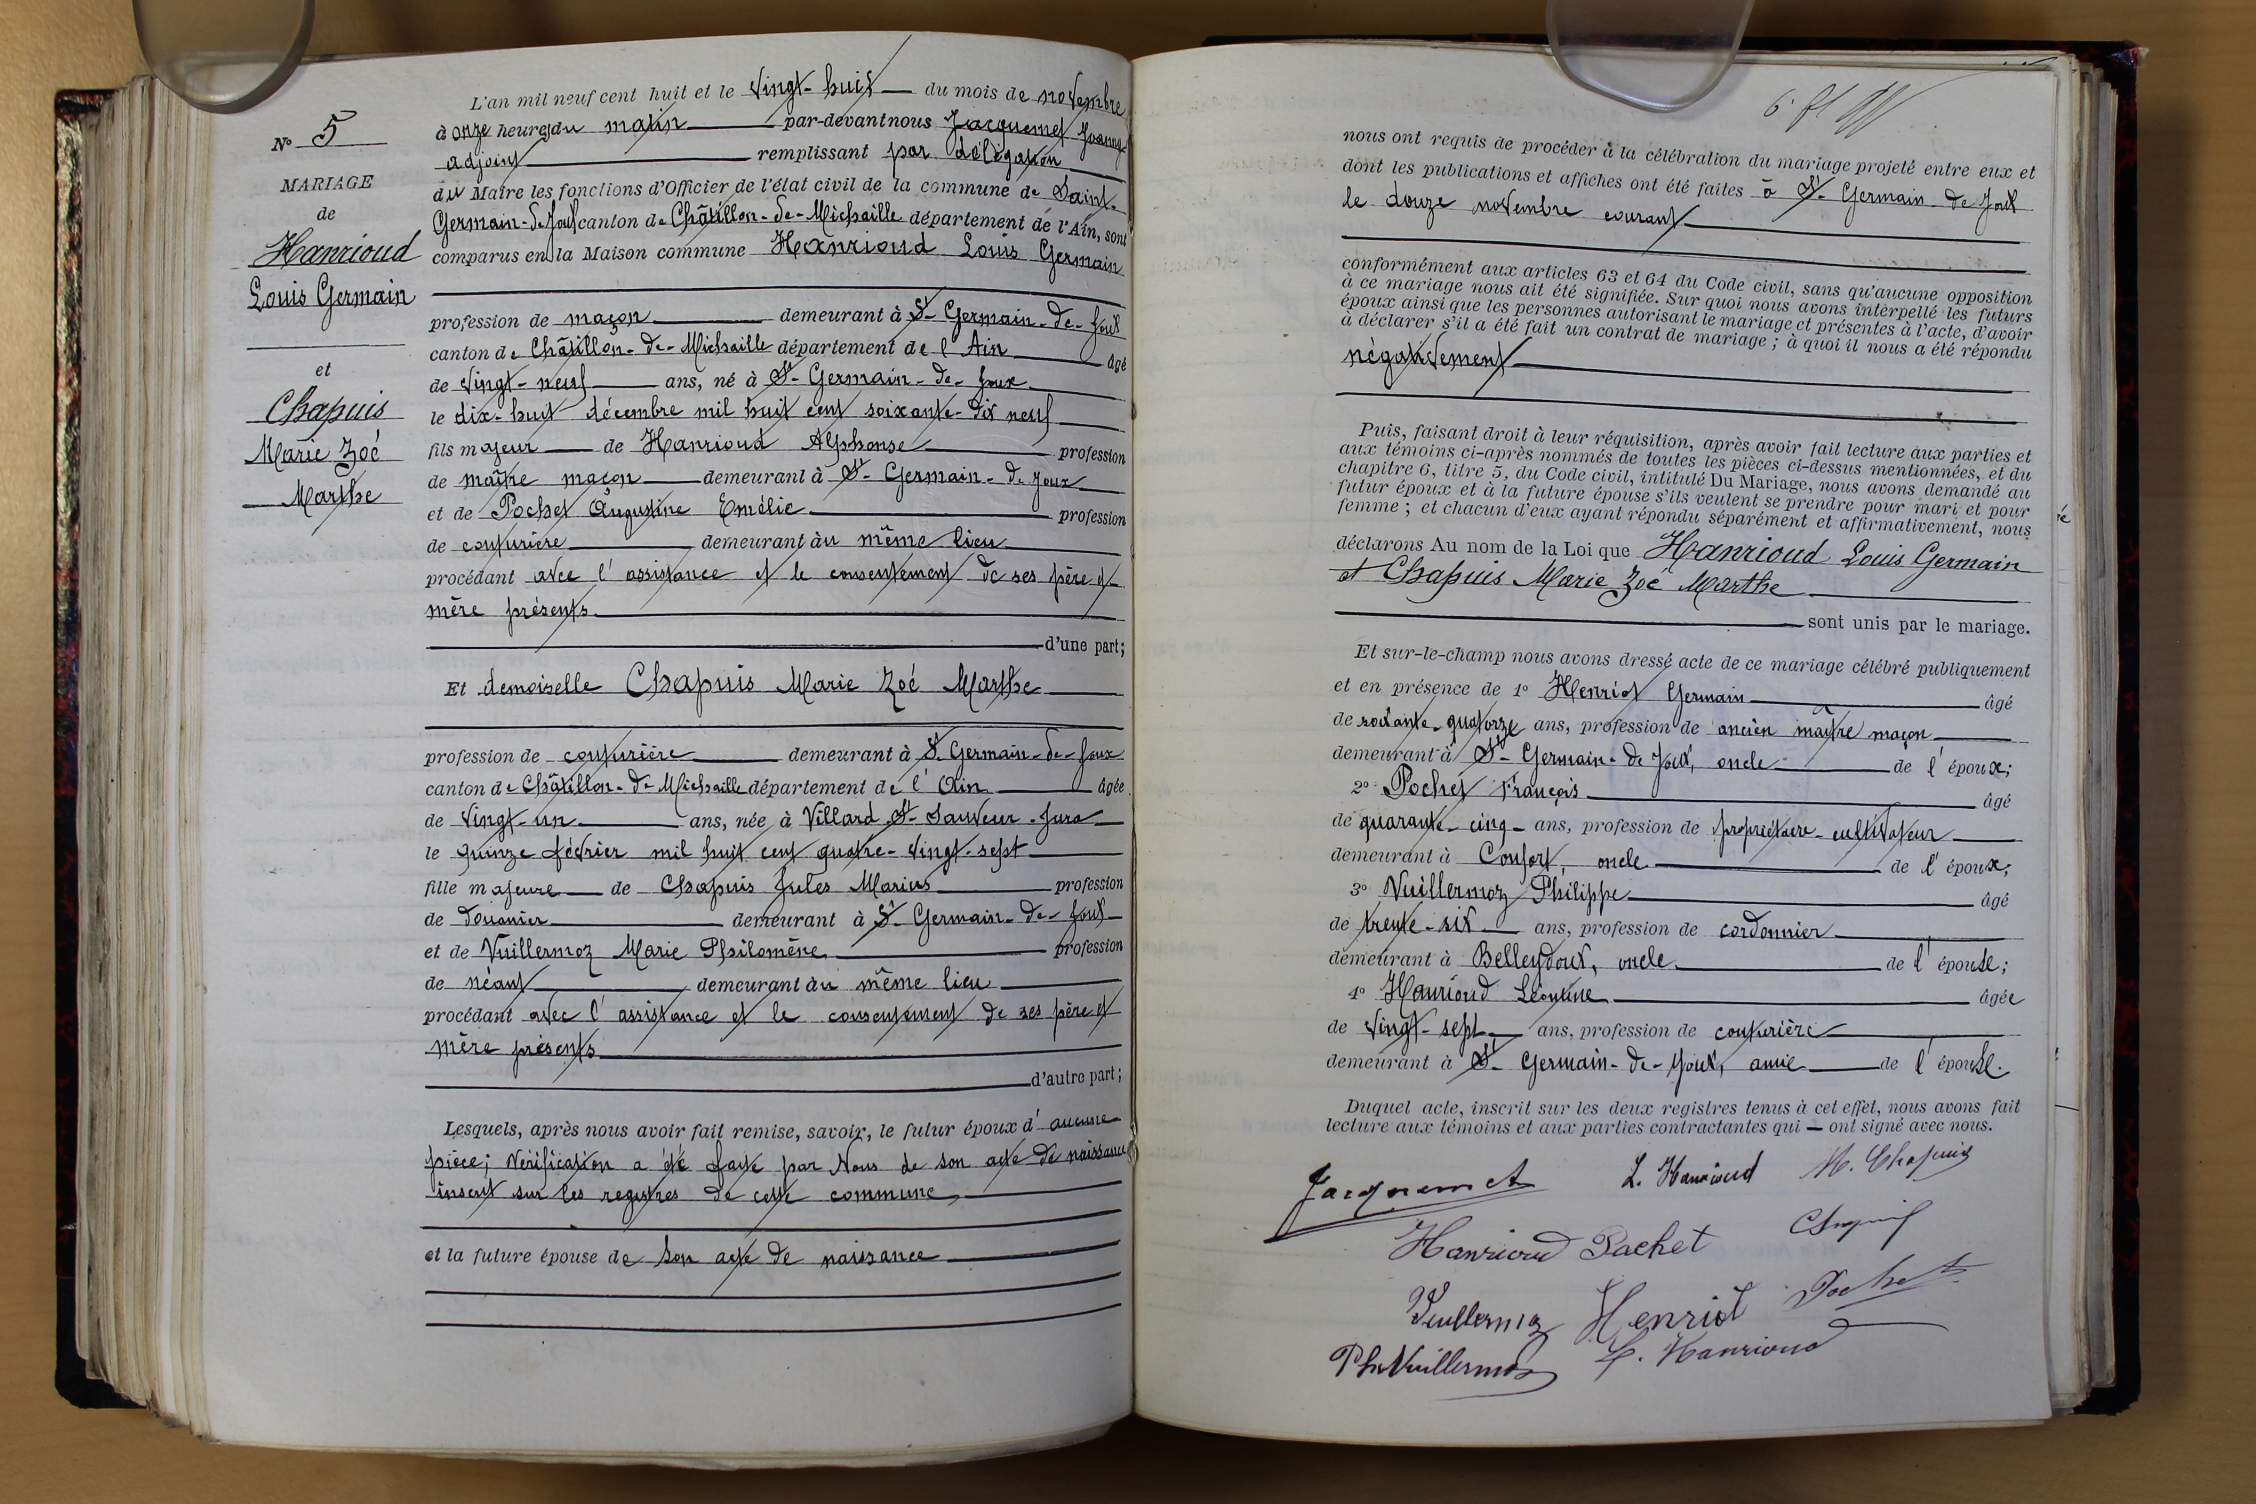 N° 5
MARIAGE
de
Hanrioud
Louis Germain
et
Chapuis
Marie Zoé
Marthe
L'an mil neuf cent huit et le vingt-huit du mois de novembre
à onze heures du matin par-devant nous Jacquemet Joanny
adjoint remplissant par délégation
du Maire les fonctions d'Officier de l'état civil de la commune de Saint-
Germain-de-Joux canton de Châtillon-de-Michaille département de l'Ain, sont
comparus en la Maison commune Hanrioud Louis Germain
profession de maçon demeurant à St-Germain-de-Joux
canton de Châtillon-de-Michaille département de l'Ain âgé
de vingt-neuf ans, né à St-Germain-de-Joux
le dix-huit décembre mil huit cent soixante-dix neuf
fils majeur de Hanrioud Alphonse profession
de maître maçon demeurant à St-Germain-de Joux
et de Pochet Augustine Emélie profession
de couturière demeurant au même lieu
procédant avec l'assistance et le consentement de ses père et
mère présents
d'une part;
Et demoiselle Chapuis Marie Zoé Marthe
profession de couturière demeurant à St Germain-de-Joux
canton de Châtillon-de-Michaille département de l'Ain âgée
de vingt-un ans, née à Villard-St-Sauveur-Jura
le quinze février mil huit cent quatre-vingt-sept
fille majeure de Chapuis Jules Marius profession
de douanier demeurant à St Germain-de-Joux
et de Vuillermoz Marie Philomène profession
de néant demeurant au même lieu
procédant avec l'assistance et le consentement de ses père et
mère présents
d'autre part;
Lesquels, après nous avoir fait remise, savoir, le futur époux d'aucune
pièce; vérification a été faite par Nous de son acte de naissance
inscrit sur les registres de cette commune,
et la future épouse de son acte de naissance
nous ont requis de procéder à la célébration du mariage projeté entre eux et
dont les publications et affiches ont été faites à St-Germain-de Joux
le douze novembre courant
conformément aux articles 63 et 64 du Code civil, sans qu'aucune opposition
à ce mariage nous ait été signifiée. Sur quoi nous avons interpellé les futurs
époux ainsi que les personnes autorisant le mariage et présentes à l'acte, d'avoir
à déclarer s'il a été fait un contrat de mariage; à quoi il nous a été répondu
négativement
Puis, faisant droit à leur réquisition, après avoir fait lecture aux parties et
aux témoins ci-après nommés de toutes les pièces ci-dessus mentionnées, et du
chapitre 6, titre 5, du Code civil, intitulé Du Mariage, nous avons demandé au
futur époux et à la future épouse s'ils veulent se prendre pour mari et pour
femme; et chacun d'eux ayant répondu séparément et affirmativement, nous
déclarons Au nom de la Loi que Hanrioud Louis Germain
et Chapuis Marie Zoé Marthe
sont unis par le mariage.
Et sur-le-champ nous avons dressé acte de ce mariage célébré publiquement
et en présence de 1° Henriot Germain âgé
de soixante-quatorze ans, profession de ancien maître maçon
demeurant à St-Germain-de Joux, oncle de l'époux;
2° Pochet François âgé
de quarante-cinq ans, profession de propriétaire-cultivateur
demeurant à Confort, oncle de l'époux;
3° Vuillermoz Philippe âgé
de trente-six ans, profession de cordonnier
demeurant à Belleydoux, oncle de l'épouse;
4° Hanrioud Léontine âgée
de vingt-sept ans, profession de couturière
demeurant à St-Germain-de-Joux, amie de l'épouse.
Duquel acte, inscrit sur les deux registres tenus à cet effet, nous avons fait
lecture aux témoins et aux parties contractantes qui — ont signé avec nous.
Jacquemet L. Hanrioud M. Chapuis
Hanrioud Pochet Chapuis
Vuillermoz Henriot Pochet
Ph Vuillermoz L. Hanrioud